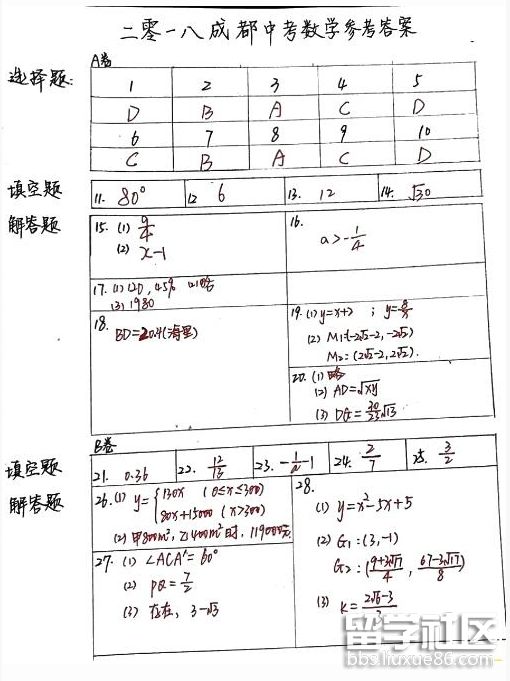 二零一八成都中考数学参考答案
A卷
选择题:
1 2 3 4 5
D B A C D
6 7 8 9 10
C B A C D
填空题
11. 80° 12 6 13. 12 14. √30
解答题
15. (1) 9/4
(2) x-1
16.
a>-1/4
17. (1) 120, 45% (2) 略
(3) 1980
18.
BD=20.4(海里)
19. (1) y=x+2 ; y=
(2) M₁:(-2√2-2, -2√2)
M₂:(2√2-2, 2√2).
20. (1) 略
(2) AD=√xy
(3) DG=30/23√13
B卷
填空题
21. 0.36 22. 12/13 23. -1/a-1 24. 2/7 25. 3/2
解答题
26. (1) y={130x (0≤x≤300)
80x+15000 (x>300)
(2) 甲800m², 乙400m²时, 119000元.
27. (1) ∠ACA'=60°
(2) PQ=7/2
(3) 存在, 3-√3
28.
(1) y=x²-5x+5
(2) G₁:(3,-1)
G₂:(9+3√17/4, 67-3√17/8)
(3) K=2√6-3/3
留学社区
bbs.liuxue86.com